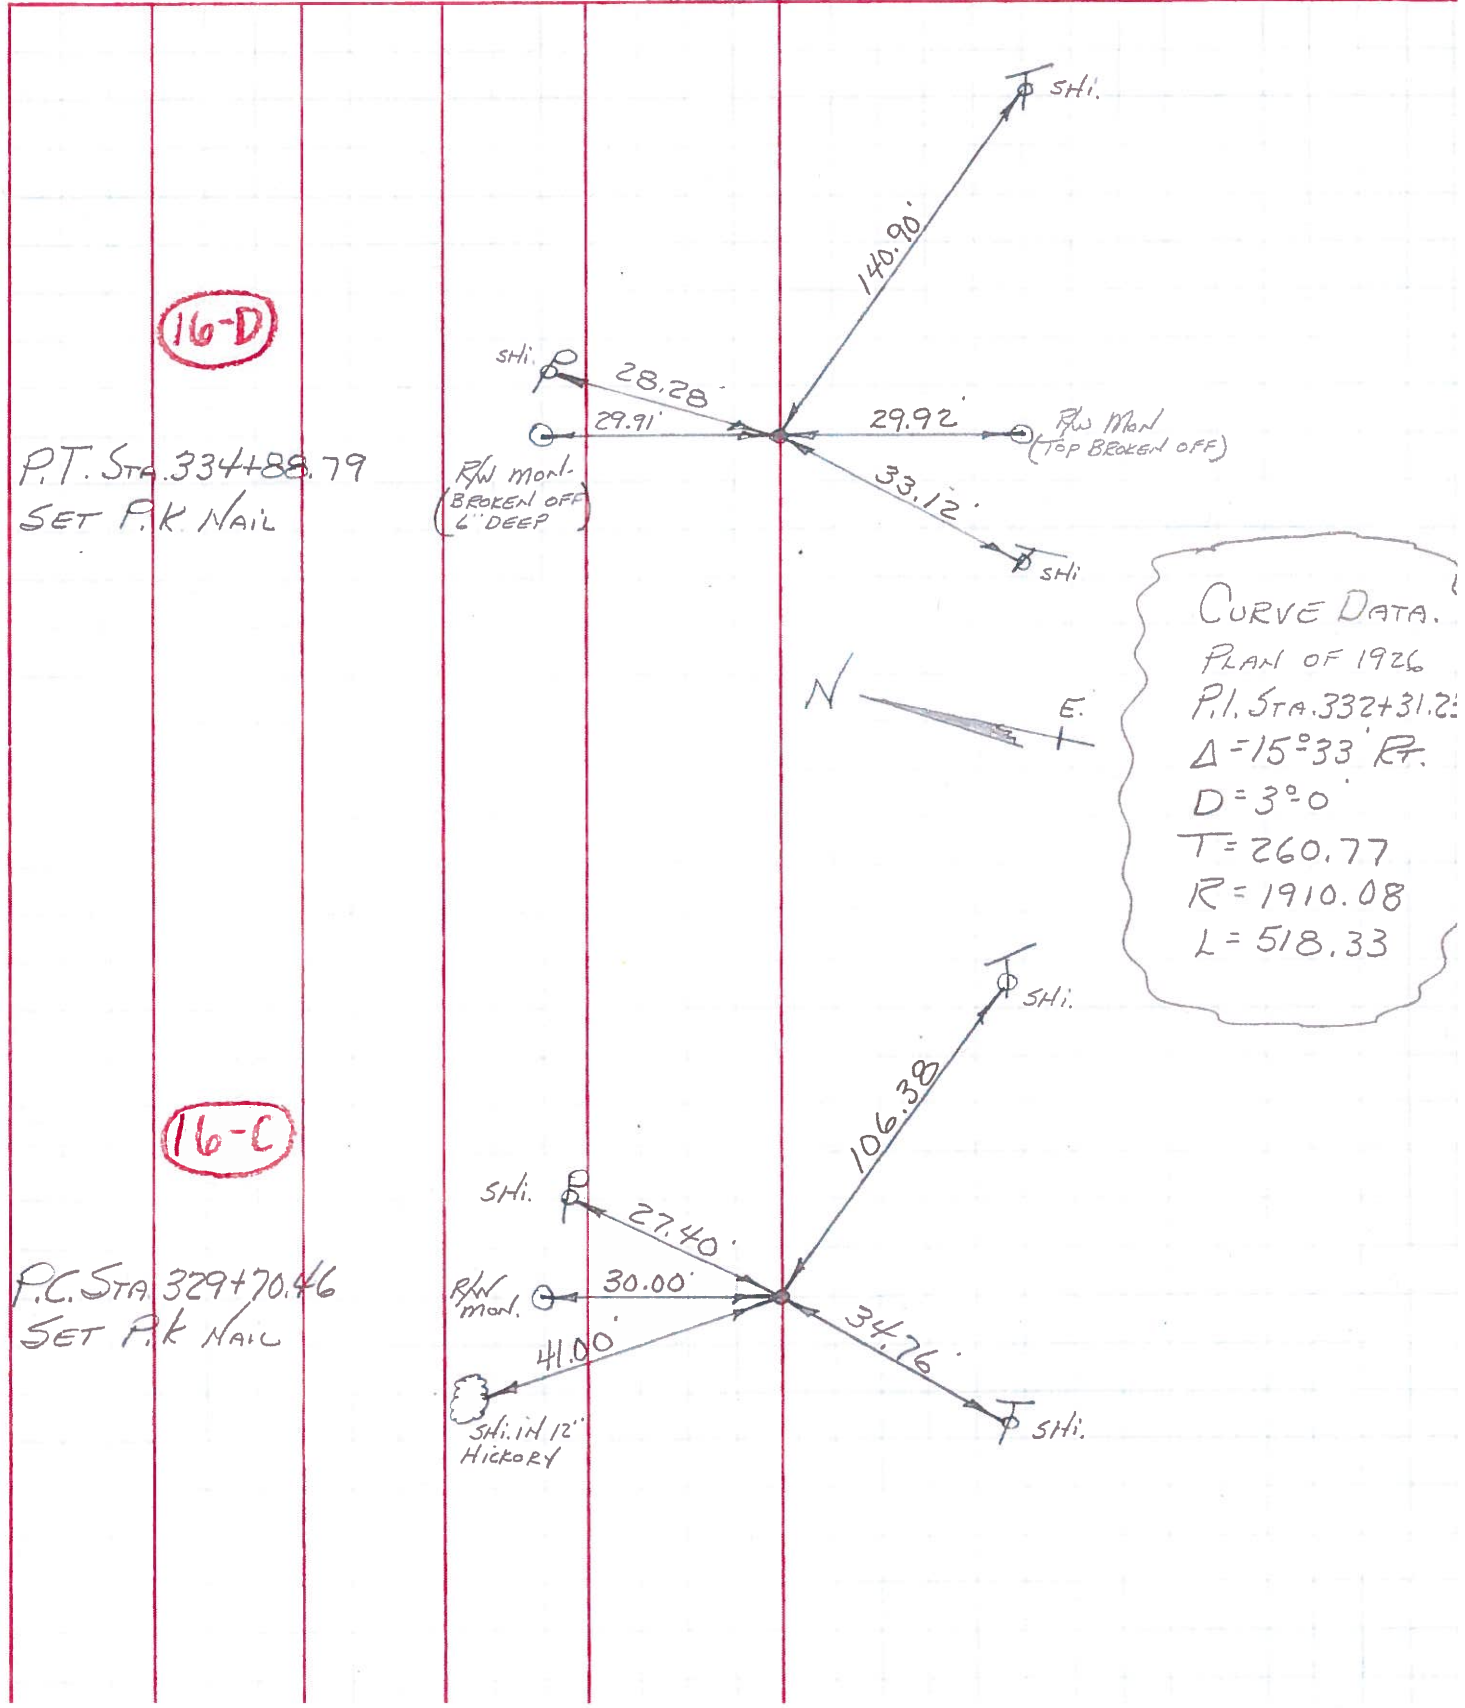 SHi.
140.90'
16-D
SHi.
28.28'
29.91'
29.92'
R/W MON
(TOP BROKEN OFF)
P.T. STA. 334+88.79
SET P.K NAIL
R/W MON.
(BROKEN OFF
6" DEEP)
33.12'
SHi
CURVE DATA.
PLAN OF 1926
P.I. STA. 332+31.23
Δ = 15°33' RT.
D = 3°0'
T = 260.77
R = 1910.08
L = 518.33
N
E.
SHi.
106.38
16-C
SHi.
27.40'
P.C. STA 329+70.46
SET P.K NAIL
R/W
MON.
30.00'
41.00'
34.76'
SHi. IN 12"
HICKORY
SHi.